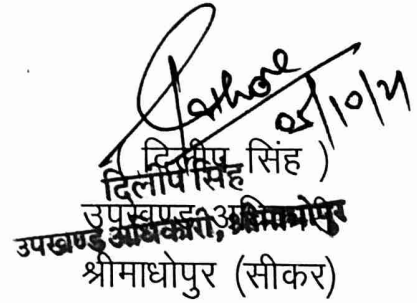 05/10/21
( दिलीप सिंह )
दिलीप सिंह
उपखण्ड अधिकारी
उपखण्ड अधिकारी, श्रीमाधोपुर
श्रीमाधोपुर (सीकर)